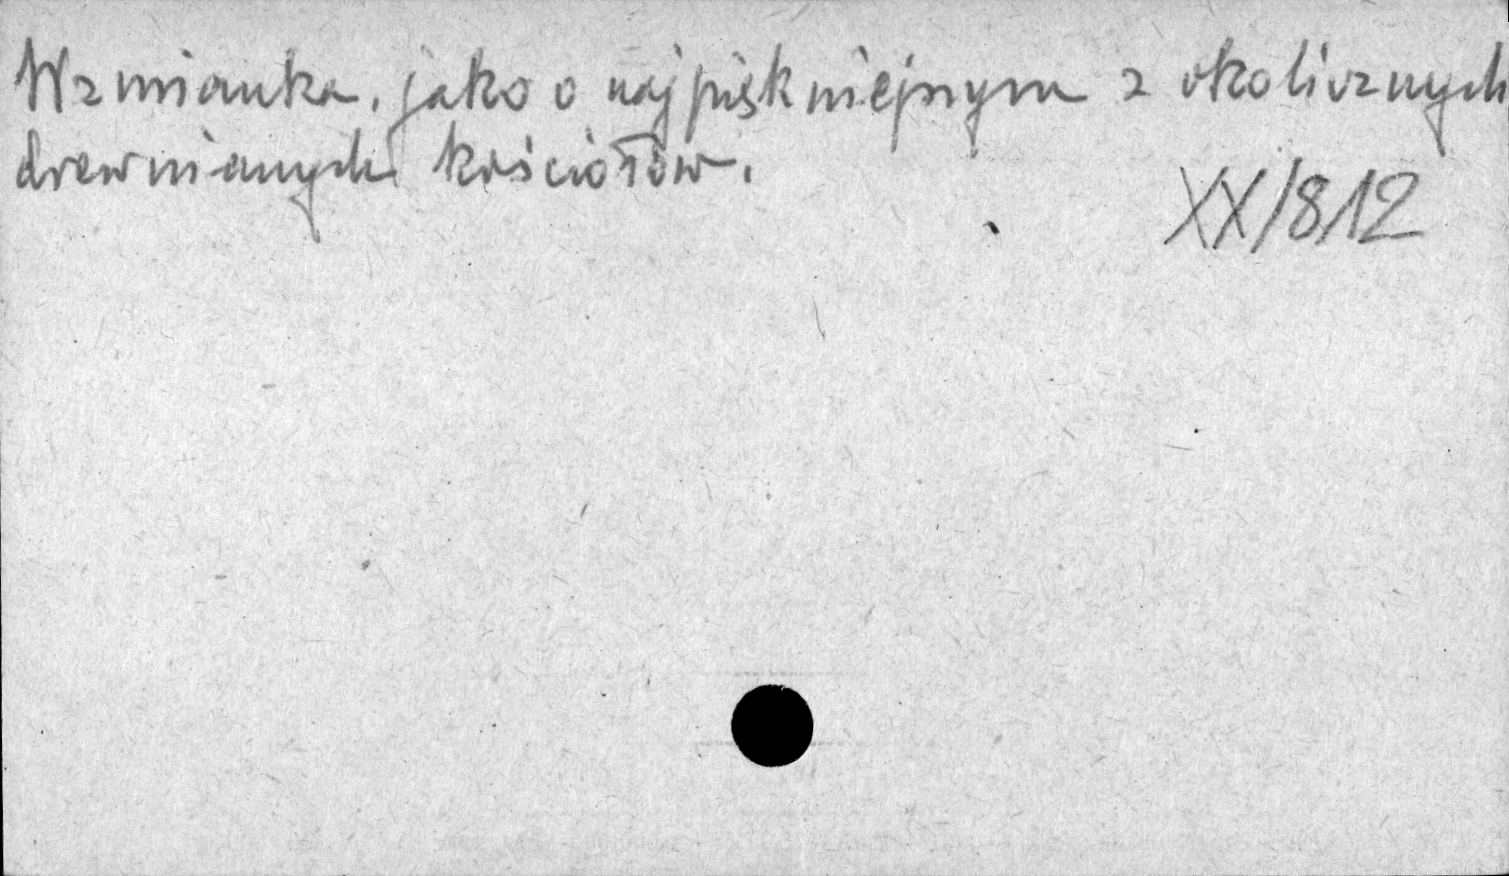 Wzmianka, jako o najpiękniejszym z okolicznych
drewnianych kościołów.
XX/812